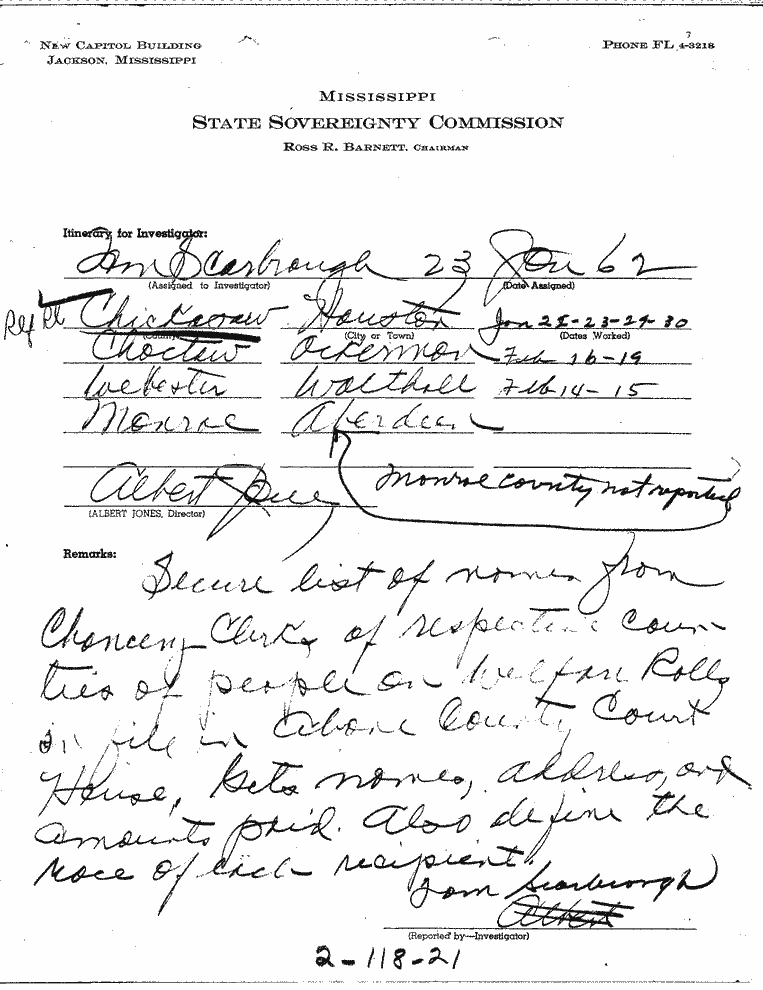 NEW CAPITOL BUILDING
JACKSON, MISSISSIPPI
PHONE FL 4-3218
7
MISSISSIPPI
STATE SOVEREIGNTY COMMISSION
ROSS R. BARNETT, CHAIRMAN
Itinerary for Investigator:
Tom Scarbrough 23 Jan 62
(Assigned to Investigator) (Date Assigned)
Chickasaw Houston Jan 25-23-29-30
(County) (City or Town) (Dates Worked)
Choctaw Ackerman Feb 16-19
Webester Walthall Feb 14-15
Monroe Aberdeen
Albert Jones Monroe county not reported
(ALBERT JONES, Director)
Remarks:
Secure list of names from
Chancery Clerks of respective coun-
ties of people on Welfare Rolls
on file in above County Court
House, Gets names, address, and
amounts paid. Also define the
race of each recipient.
Tom Scarbrough
Albert
(Reported by—Investigator)
2-118-21